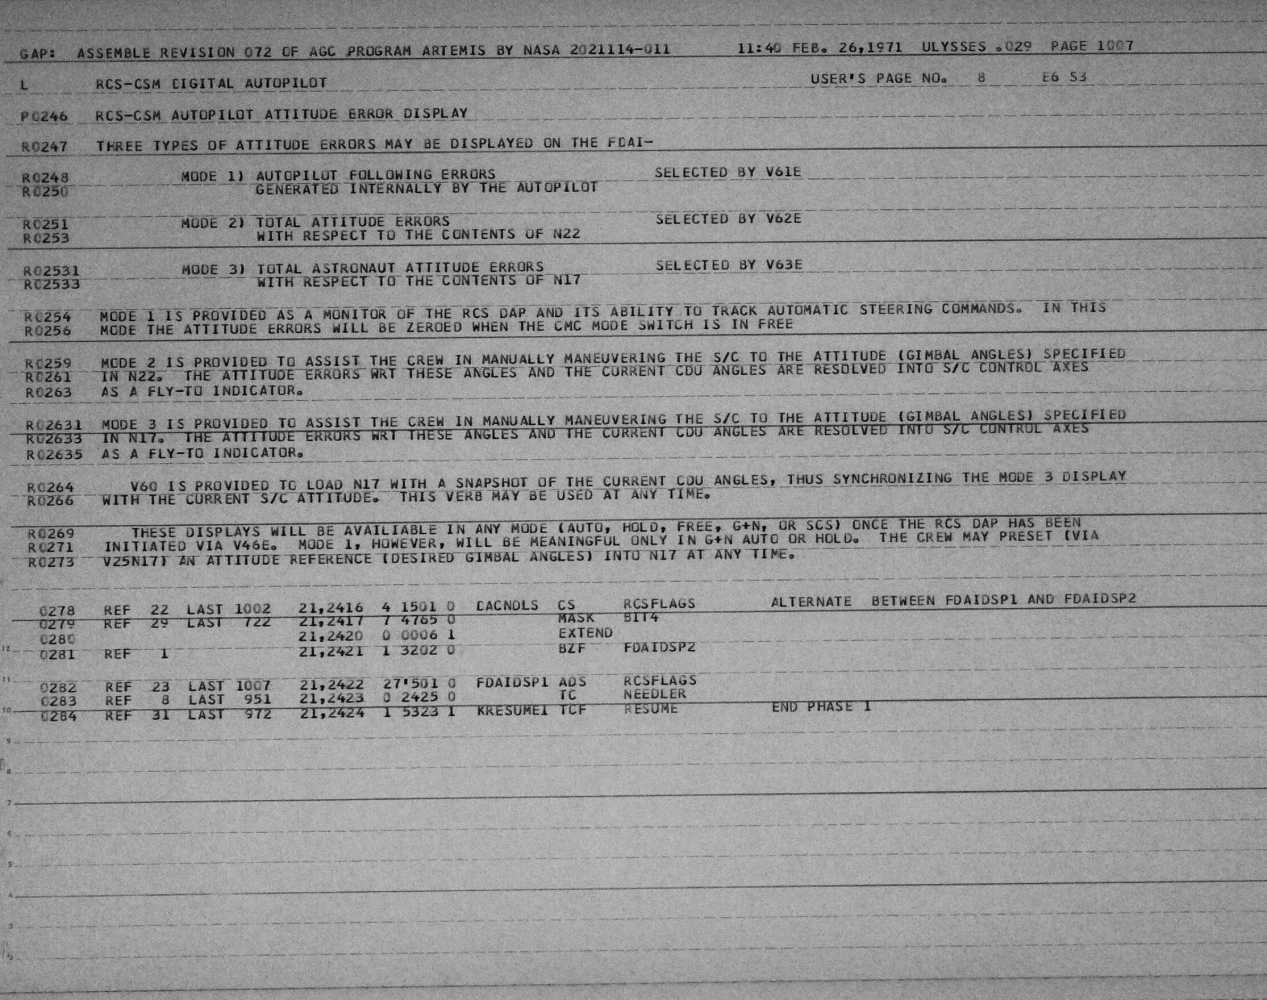 GAP: ASSEMBLE REVISION 072 OF AGC PROGRAM ARTEMIS BY NASA 2021114-011 11:40 FEB. 26,1971 ULYSSES .029 PAGE 1007
L RCS-CSM DIGITAL AUTOPILOT USER'S PAGE NO. 8 E6 S3
P0246 RCS-CSM AUTOPILOT ATTITUDE ERROR DISPLAY
R0247 THREE TYPES OF ATTITUDE ERRORS MAY BE DISPLAYED ON THE FDAI-
R0248 MODE 1) AUTOPILOT FOLLOWING ERRORS SELECTED BY V61E
R0250 GENERATED INTERNALLY BY THE AUTOPILOT
R0251 MODE 2) TOTAL ATTITUDE ERRORS SELECTED BY V62E
R0253 WITH RESPECT TO THE CONTENTS OF N22
R02531 MODE 3) TOTAL ASTRONAUT ATTITUDE ERRORS SELECTED BY V63E
R02533 WITH RESPECT TO THE CONTENTS OF N17
R0254 MODE 1 IS PROVIDED AS A MONITOR OF THE RCS DAP AND ITS ABILITY TO TRACK AUTOMATIC STEERING COMMANDS. IN THIS
R0256 MODE THE ATTITUDE ERRORS WILL BE ZEROED WHEN THE CMC MODE SWITCH IS IN FREE
R0259 MODE 2 IS PROVIDED TO ASSIST THE CREW IN MANUALLY MANEUVERING THE S/C TO THE ATTITUDE (GIMBAL ANGLES) SPECIFIED
R0261 IN N22. THE ATTITUDE ERRORS WRT THESE ANGLES AND THE CURRENT CDU ANGLES ARE RESOLVED INTO S/C CONTROL AXES
R0263 AS A FLY-TO INDICATOR.
R02631 MODE 3 IS PROVIDED TO ASSIST THE CREW IN MANUALLY MANEUVERING THE S/C TO THE ATTITUDE (GIMBAL ANGLES) SPECIFIED
R02633 IN N17. THE ATTITUDE ERRORS WRT THESE ANGLES AND THE CURRENT CDU ANGLES ARE RESOLVED INTO S/C CONTROL AXES
R02635 AS A FLY-TO INDICATOR.
R0264 V60 IS PROVIDED TO LOAD N17 WITH A SNAPSHOT OF THE CURRENT CDU ANGLES, THUS SYNCHRONIZING THE MODE 3 DISPLAY
R0266 WITH THE CURRENT S/C ATTITUDE. THIS VERB MAY BE USED AT ANY TIME.
R0269 THESE DISPLAYS WILL BE AVAILIABLE IN ANY MODE (AUTO, HOLD, FREE, G+N, OR SCS) ONCE THE RCS DAP HAS BEEN
R0271 INITIATED VIA V46E. MODE 1, HOWEVER, WILL BE MEANINGFUL ONLY IN G+N AUTO OR HOLD. THE CREW MAY PRESET (VIA
R0273 V25N17) AN ATTITUDE REFERENCE (DESIRED GIMBAL ANGLES) INTO N17 AT ANY TIME.
0278 REF 22 LAST 1002 21,2416 4 1501 0 CACNDLS CS RCSFLAGS ALTERNATE BETWEEN FDAIDSP1 AND FDAIDSP2
0279 REF 29 LAST 722 21,2417 7 4765 0 MASK BIT4
0280 21,2420 0 0006 1 EXTEND
12 0281 REF 1 21,2421 1 3202 0 BZF FDAIDSP2
11 0282 REF 23 LAST 1007 21,2422 27'501 0 FDAIDSP1 ADS RCSFLAGS
0283 REF 8 LAST 951 21,2423 0 2425 0 TC NEEDLER
10 0284 REF 31 LAST 972 21,2424 1 5323 1 KRESUME1 TCF RESUME END PHASE 1
9
8
7
6
5
4
3
2